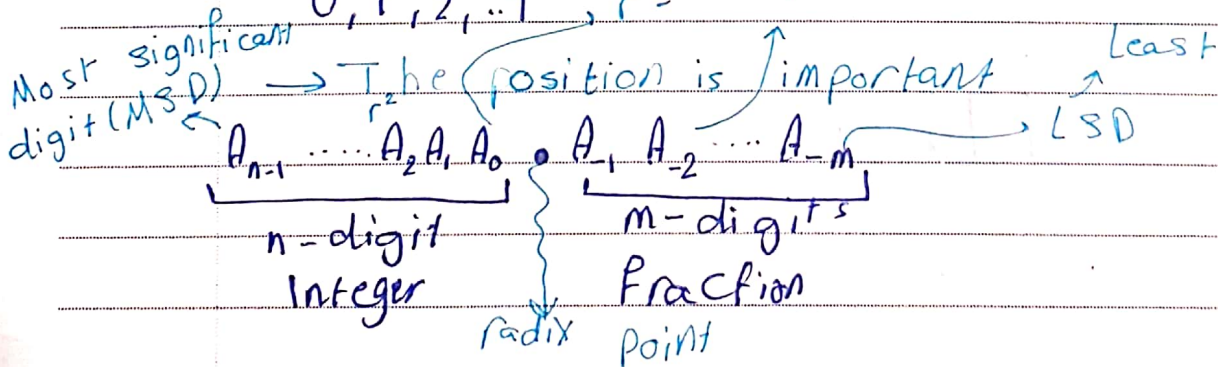 0, 1, 2, ..
Most significant
digit (MSD)
→ The position is important
Least
LSD
r²
Aₙ₋₁ ...... A₂ A₁ A₀ . A₋₁ A₋₂ .... A₋ₘ
n-digit
Integer
m-digits
fraction
radix point